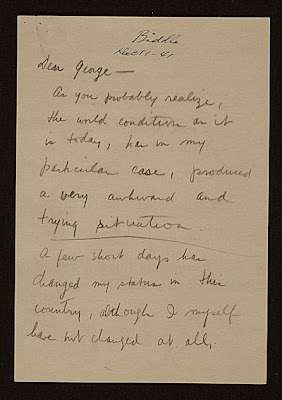 Biddle
Dec 11-41
Dear George —
As you probably realize,
the world condition as it
is today, has in my
particular case, produced
a very awkward and
trying situation.
A few short days has
changed my status in this
country, although I myself
have not changed at all.